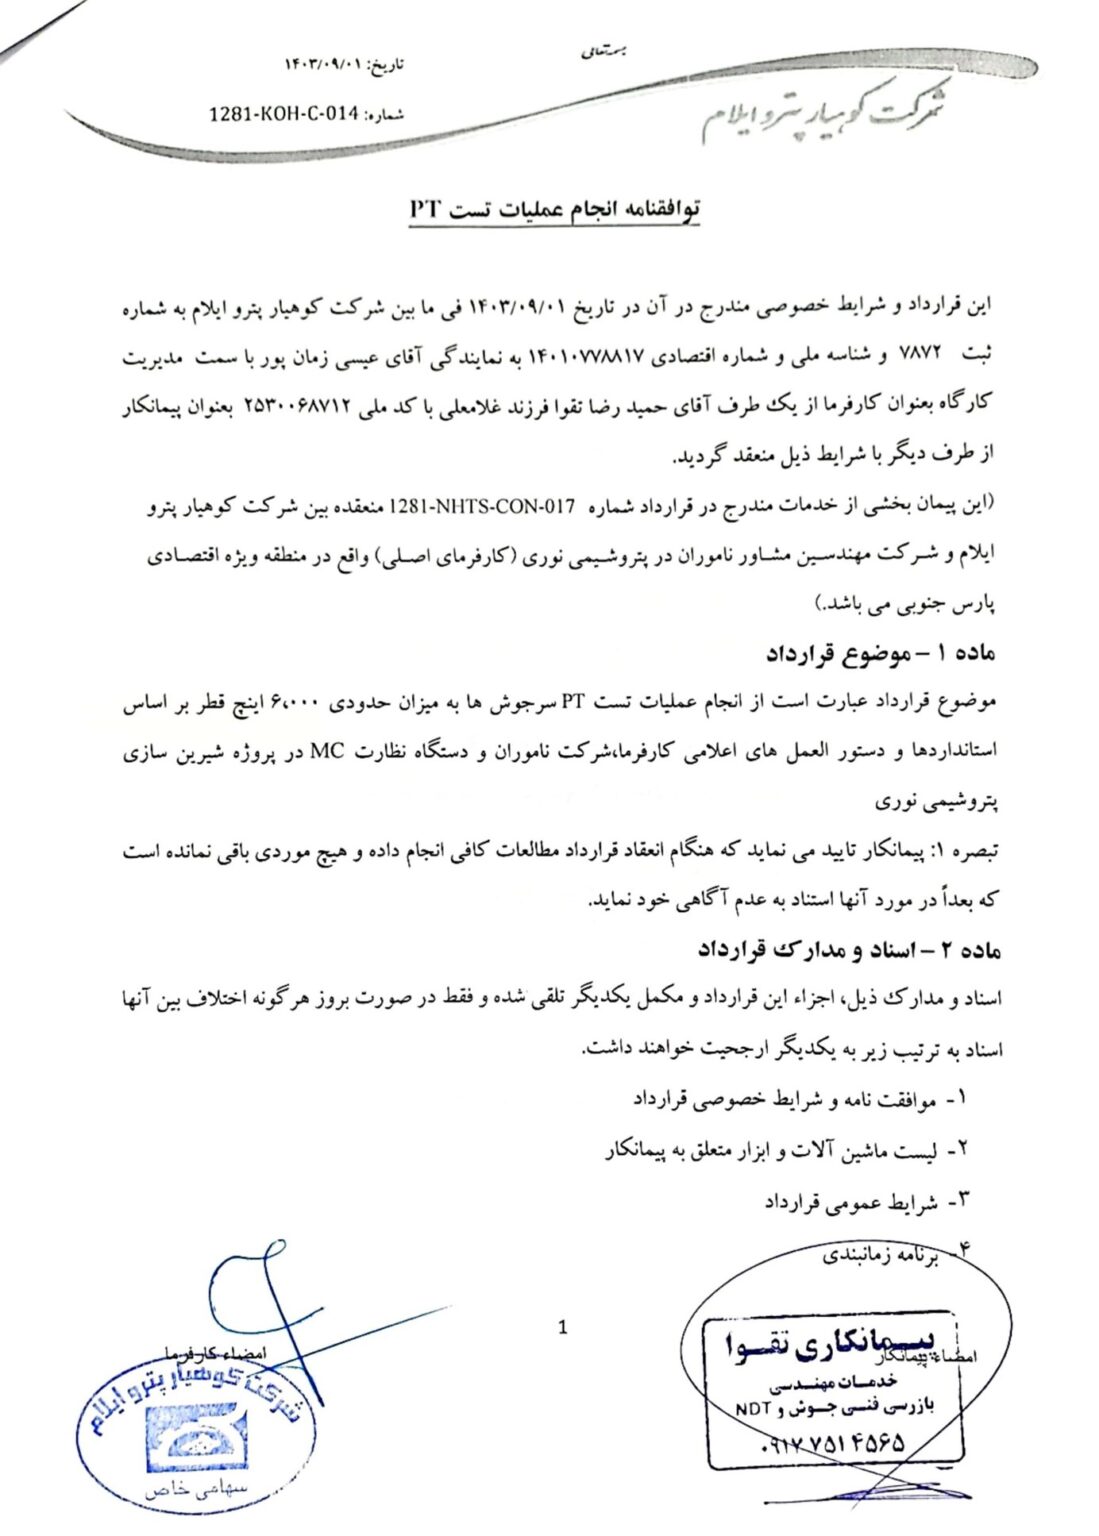 بسمه تعالی
تاریخ: ۱۴۰۳/۰۹/۰۱
شماره: 1281-KOH-C-014
شرکت کوهیار پترو ایلام
توافقنامه انجام عملیات تست PT
این قرارداد و شرایط خصوصی مندرج در آن در تاریخ ۱۴۰۳/۰۹/۰۱ فی ما بین شرکت کوهیار پترو ایلام به شماره
ثبت ۷۸۷۲ و شناسه ملی و شماره اقتصادی ۱۴۰۱۰۷۷۸۸۱۷ به نمایندگی آقای عیسی زمان پور با سمت مدیریت
کارگاه بعنوان کارفرما از یک طرف آقای حمید رضا تقوا فرزند غلامعلی با کد ملی ۲۵۳۰۰۶۸۷۱۲ بعنوان پیمانکار
از طرف دیگر با شرایط ذیل منعقد گردید.
(این پیمان بخشی از خدمات مندرج در قرارداد شماره 1281-NHTS-CON-017 منعقده بین شرکت کوهیار پترو
ایلام و شرکت مهندسین مشاور ناموران در پتروشیمی نوری (کارفرمای اصلی) واقع در منطقه ویژه اقتصادی
پارس جنوبی می باشد.)
ماده ۱ – موضوع قرارداد
موضوع قرارداد عبارت است از انجام عملیات تست PT سرجوش ها به میزان حدودی ۶،۰۰۰ اینچ قطر بر اساس
استانداردها و دستور العمل های اعلامی کارفرما،شرکت ناموران و دستگاه نظارت MC در پروژه شیرین سازی
پتروشیمی نوری
تبصره ۱: پیمانکار تایید می نماید که هنگام انعقاد قرارداد مطالعات کافی انجام داده و هیچ موردی باقی نمانده است
که بعداً در مورد آنها استناد به عدم آگاهی خود نماید.
ماده ۲ – اسناد و مدارک قرارداد
اسناد و مدارک ذیل، اجزاء این قرارداد و مکمل یکدیگر تلقی شده و فقط در صورت بروز هرگونه اختلاف بین آنها
اسناد به ترتیب زیر به یکدیگر ارجحیت خواهند داشت.
۱- موافقت نامه و شرایط خصوصی قرارداد
۲- لیست ماشین آلات و ابزار متعلق به پیمانکار
۳- شرایط عمومی قرارداد
۴- برنامه زمانبندی
1
امضاء پیمانکار
پیمانکاری تقوا
خدمات مهندسی
بازرسی فنی جوش و NDT
۰۹۱۷ ۷۵۱ ۴۵۶۵
امضاء کارفرما
شرکت کوهیار پترو ایلام
سهامی خاص